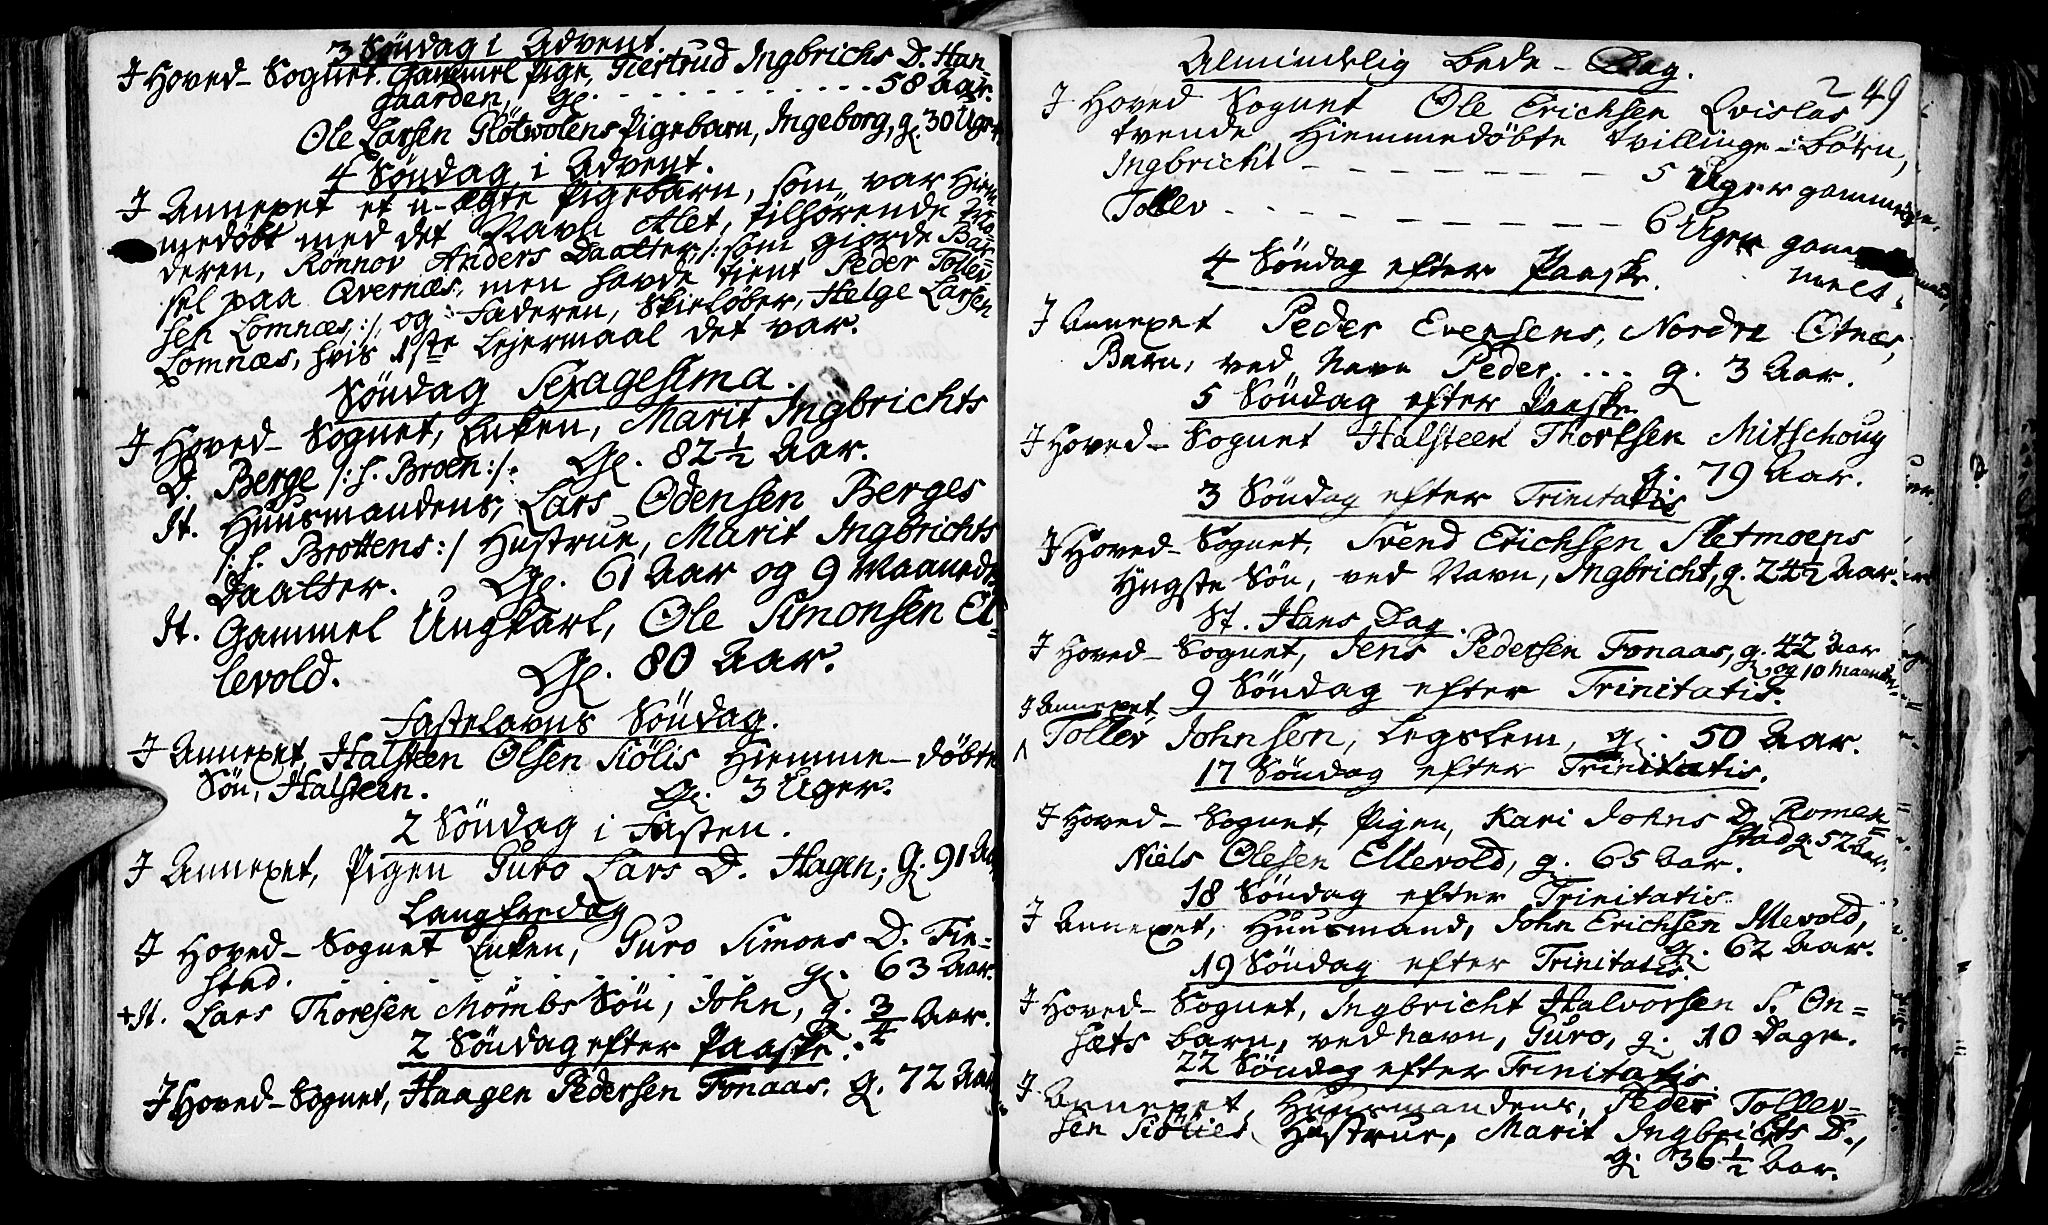 3 Søndag i Advent.
I Hoved-Sognet. Gammel Pige, Giertrud Ingbrichs D. Han-
gaarden, gl. - - - - - - - - - - - 58 Aar.
Ole Larsen Glötvolens Pigebarn, Ingeborg, g. 30 Uger
4 Søndag i Advent.
I Annexet et u-ægte Pigebarn, som var hiem-
medøbt med det Navn Alet, tilhørende Mo-
deren, Rønnov Anders Daatter, /: som giorde Bar-
sel paa Qvernæs, men havde tient Peder Tollev-
sen Lomnæs :/, og Faderen, Skieløber, Helge Larsen
Lomnæs, hvis 1ste Lejermaal det var.
Søndag Sexagesima.
I Hoved-Sognet, Enken, Marit Ingbrichts
D. Berge /: h. Broen :/. Gl. 82½ Aar.
It. Huusmandens, Lars Odensen Berges
/: h. Brottens :/ Hustrue, Marit Ingbrichts
Daatter. Gl. 61 Aar og 9 Maaneder
It. Gammel Ungkarl, Ole Simonsen El-
levold. Gl. 80 Aar.
Fastelavns Søndag.
I Annexet, Halsteen Olsen Kiölis Hiemme-døbte
Søn, Halsteen. Gl. 3 Uger.
2 Søndag i Fasten.
I Annexet, Pigen Guro Lars D. Hagen, G. 91 Aar
Langfredag
I Hoved-Sognet Enken, Guro Simons D. Fin-
stad. - - - - - - - g. 63 Aar.
+ It. Lars Thoresen Mömbs Søn, John, g. 3/4 Aar.
2 Søndag efter Paaske.
I Hoved-Sognet, Haagen Pedersen Fonaas, g. 72 Aar
249
Almindelig Bede-Dag.
I Hoved Sognet Ole Erichsen Qvislas
tvende Hiemmedøbte tvillinge-Børn,
Ingbricht - - - - - - - 5 Uger gammel,
Tollev - - - - - - - - 6 Uger gam
melt.
4 Søndag efter Paaske.
I Annexet Peder Evensens, Nordre Otnæs,
Barn, ved Navn Peder. ... g. 3 Aar.
5 Søndag efter Paaske
I Hoved-Sognet Halsteen Thorksen Mitschoug
g. 79 Aar.
3 Søndag efter Trinitatis
I Hoved-Sognet, Svend Erichsen Sletmoens
Yngste Søn, ved Navn, Ingbricht, g. 24½ Aar.
St. Hans Dag.
I Hoved-Sognet, Jens Pedersen Fonaas, g. 42 Aar
og 10 Maaneder
9 Søndag efter Trinitatis.
I Annexet,
Tollev Johnsen, Legslem, g. 50 Aar.
17 Søndag efter Trinitatis.
I Hoved-Sognet, Pigen, Kari Johns D. Romen-
stad g. 52 Aar.
Niels Olesen Ellevold, g. 65 Aar.
18 Søndag efter Trinitatis.
I Annexet, Huusmand, John Erichsen Mevold,
g. 62 Aar.
19 Søndag efter Trinitatis.
I Hoved-Sognet, Ingbricht Halvorsen S. On-
sæts barn, ved Navn, Guro, g. 10 Dage.
22 Søndag efter Trinitatis.
I Annexet, Huusmandens, Peder Tollev-
sen Kiölies Hustrue, Marit Ingbrichts D.,
g. 36½ Aar.